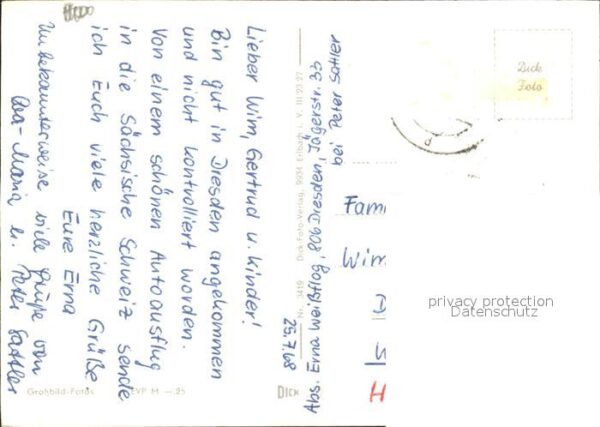 25.7.68
Lieber Wim, Gertrud u. Kinder!
Bin gut in Dresden angekommen
und nicht kontrolliert worden.
Von einem schönen Autoausflug
in die Sächsische Schweiz sende
ich Euch viele herzliche Grüße
Eure Erna
Unbekannterweise viele Grüße von
Maria u. Peter Sattler
Großbild-Fotos EVP M -.25
DICK Nr. 3419 Dick-Foto-Verlag, 9934 Erlbach i. V. III 23 27
Abs. Erna Weißflog, 806 Dresden, Jägerstr. 33
bei Peter Sattler
Dick
Foto
d
Fam
Wim
S
H
privacy protection
Datenschutz